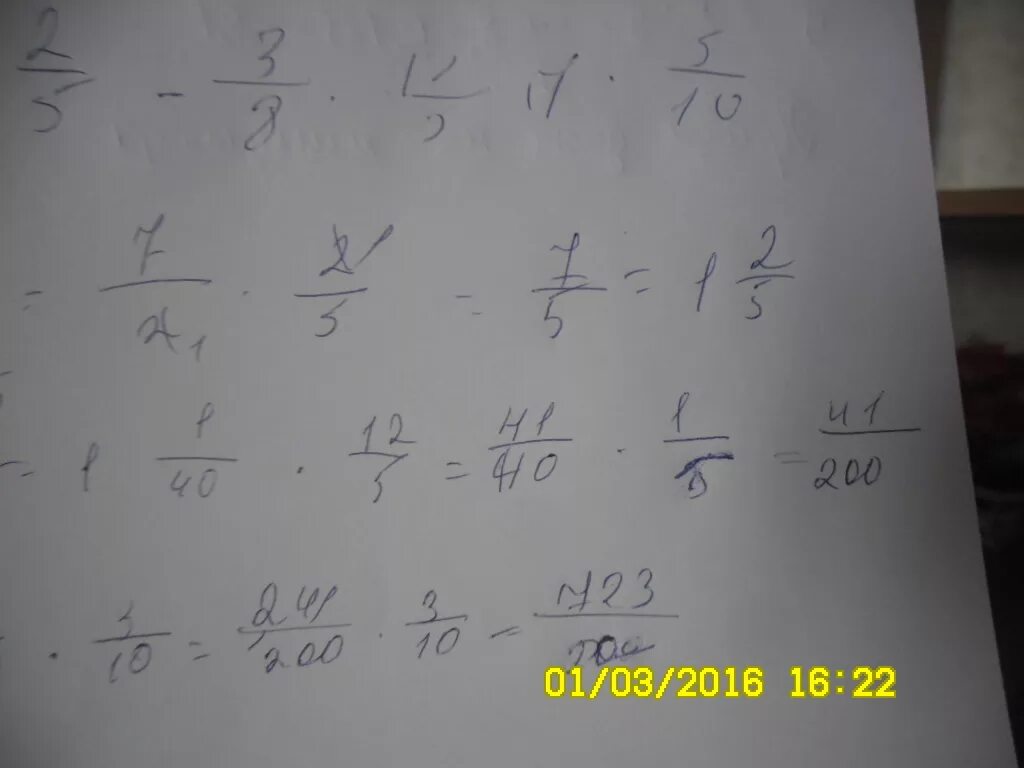 2/5 - 3/8 · 5/10
= 7/2 1 · 2 1/5 = 7/5 = 1 2/5
= 1 1/40 · 12/5 = 41/40 · 1/5 = 41/200
· 3/10 = 241/200 · 3/10 = 723
01/03/2016 16:22